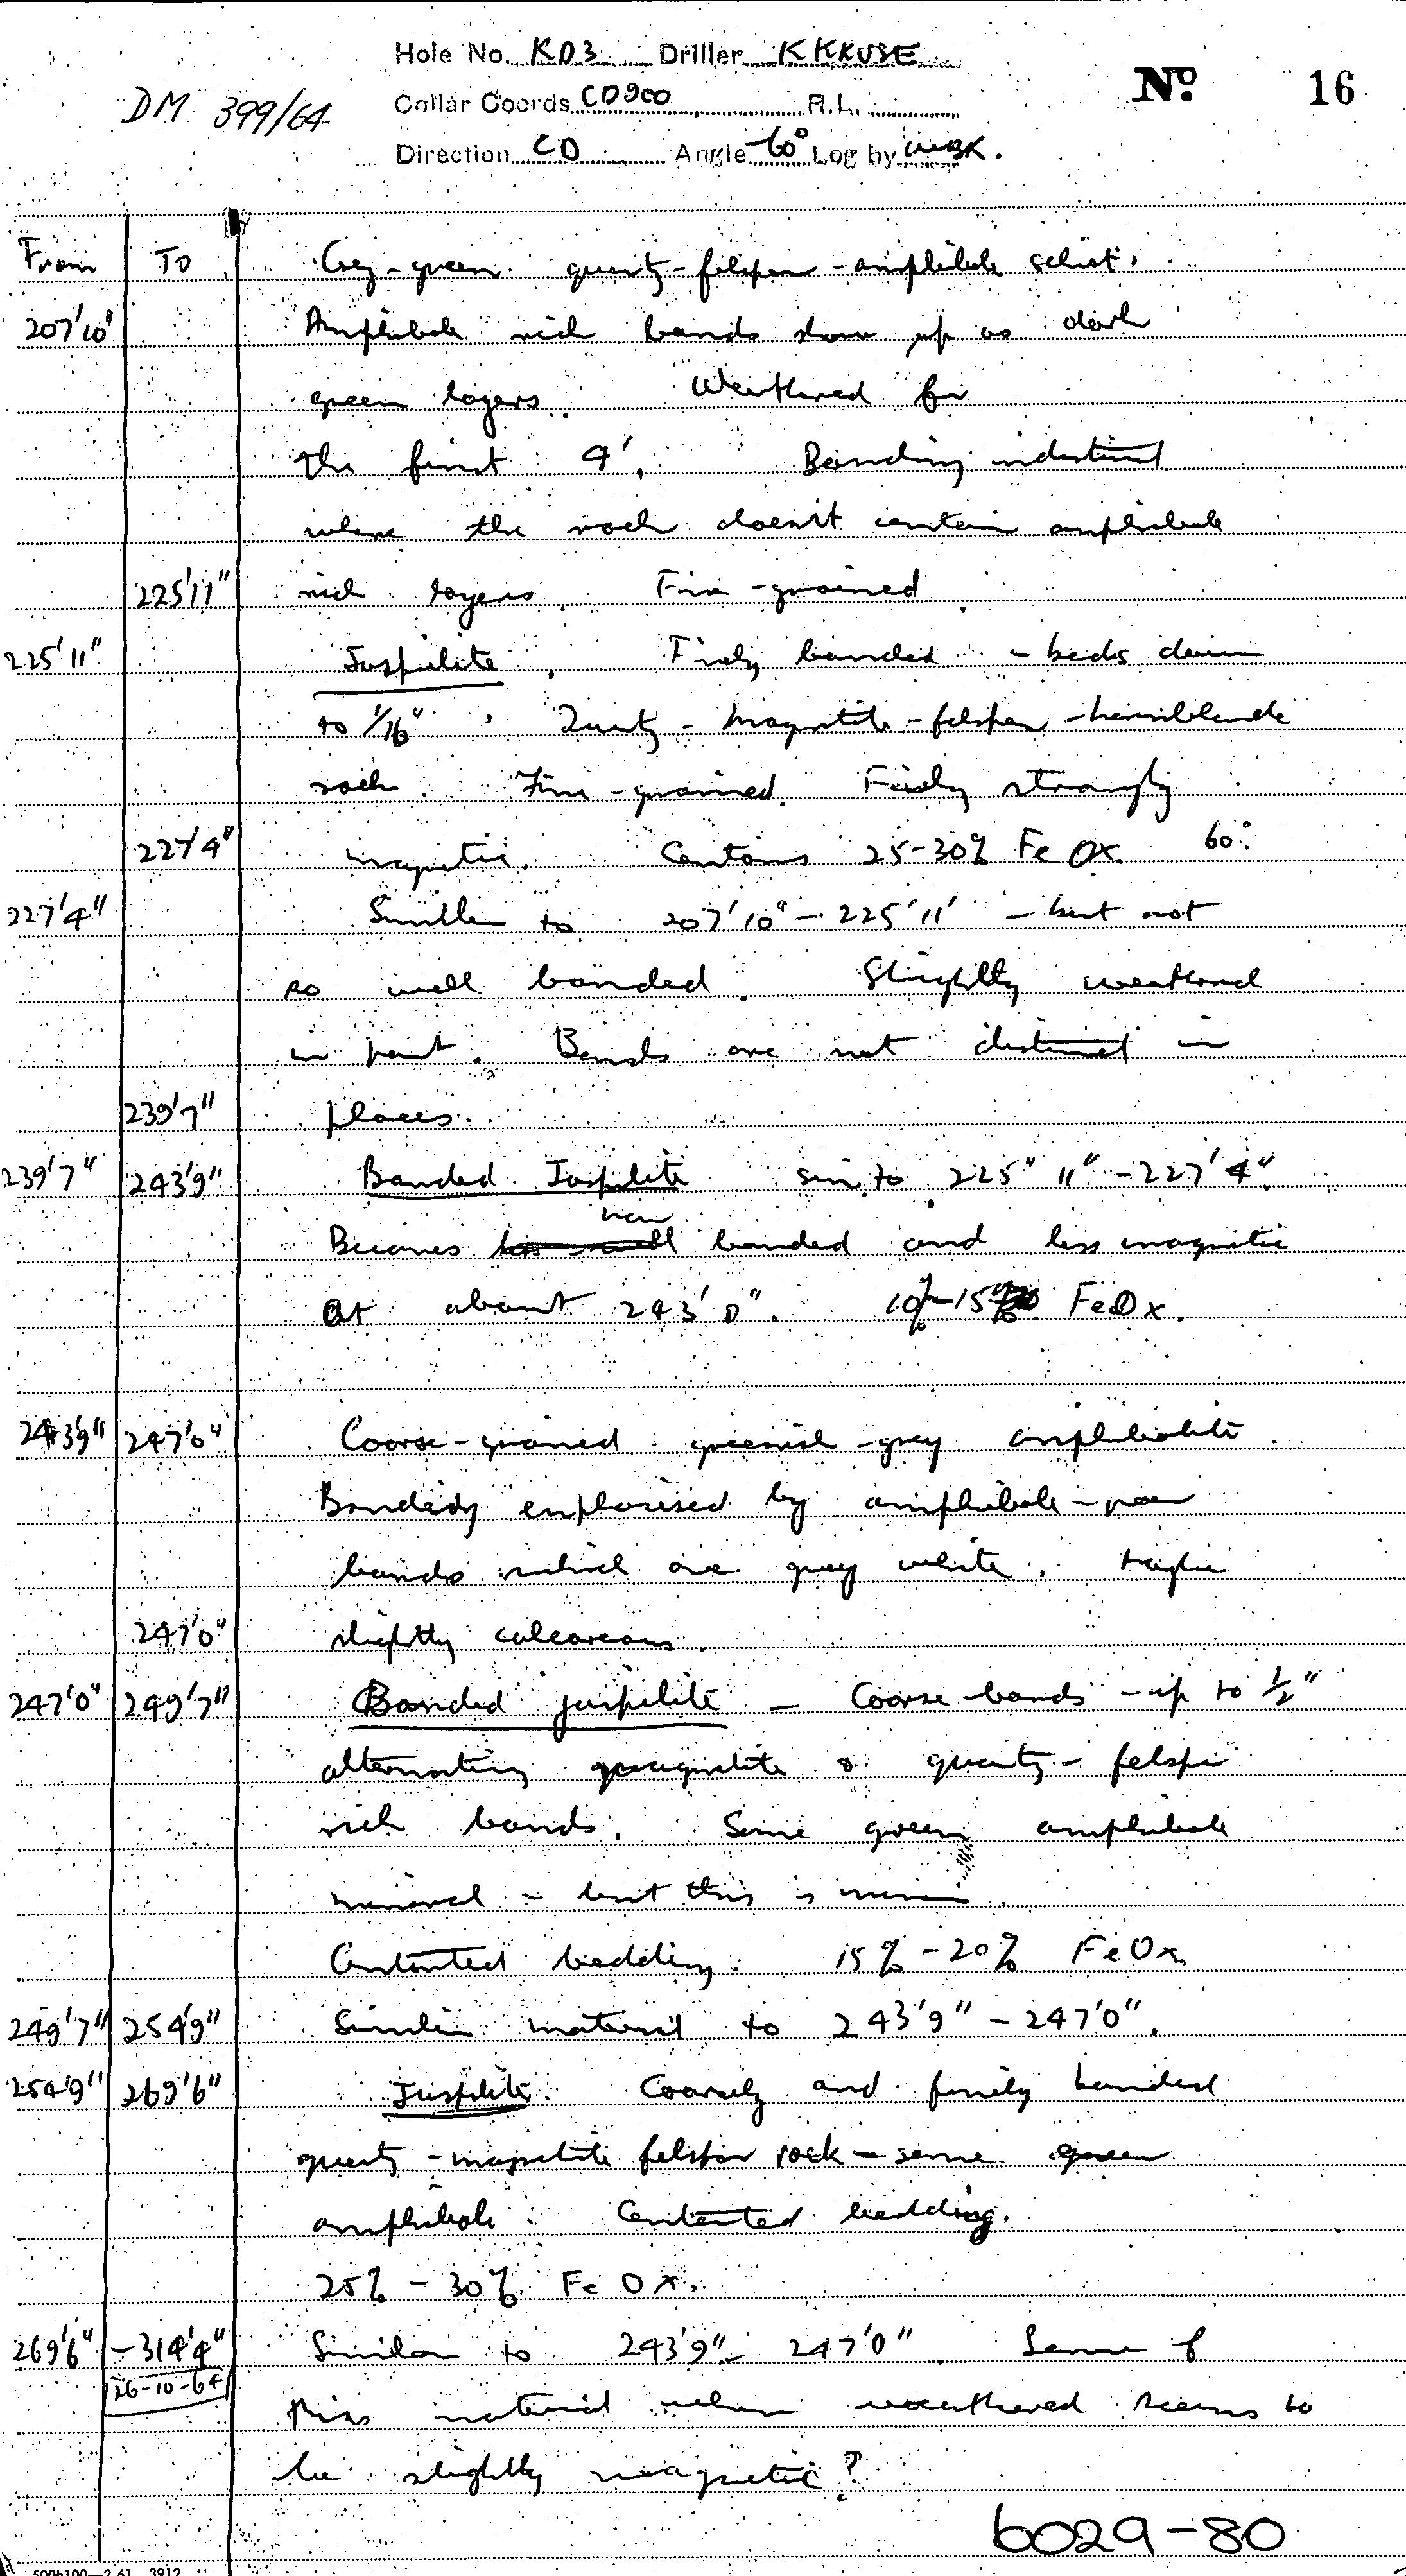 Hole No. KD3 Driller K KRUSE
Nº 16
DM 399/64
Collar Coords CD900 R.L.
Direction CD Angle -60° Log by WBK.
From To Grey-green quartz-felspar-amphibole schist.
207'10" Amphibole rich bands show up as dark
green layers. Weathered for
the first 4'. Banding indistinct
where the rock doesn't contain amphibole
225'11" rich layers. Fine-grained.
225'11" Jaspilite. Finely banded - beds down
to 1/16". Quartz-magnetite-felspar-hornblende
rock. Fine-grained. Fairly strongly
227'4" magnetic. Contains 25-30% Fe Ox. 60°
227'4" Similar to 207'10" - 225'11" - but not
so well banded. Slightly weathered
in part. Bands are not distinct in
239'7" places.
239'7" 243'9" Banded Jaspilite sim. to 225" 11" - 227'4".
Becomes banded and less magnetic
at about 243'0". 10%-15% FeOx.
243'9" 247'0" Coarse-grained greenish-grey amphibolite.
Banding emphasised by amphibole-poor
bands which are grey white.
247'0" slightly calcareous.
247'0" 249'7" Banded jaspilite - Coarse bands - up to 1/2"
alternating magnetite & quartz-felspar
rich bands. Some green amphibole
mineral - but this is minor.
Contorted bedding. 15% - 20% FeOx
249'7" 254'9" Similar material to 243'9" - 247'0".
254'9" 269'6" Jaspilite. Coarsely and finely banded
quartz-magnetite felspar rock - some green
amphibole. Contorted bedding.
25% - 30% Fe Ox.
269'6" - 314'4" Similar to 243'9" - 247'0". Some of
26-10-64
this material when weathered seems to
be slightly magnetic?
6029-80
500b100-2.61 3912